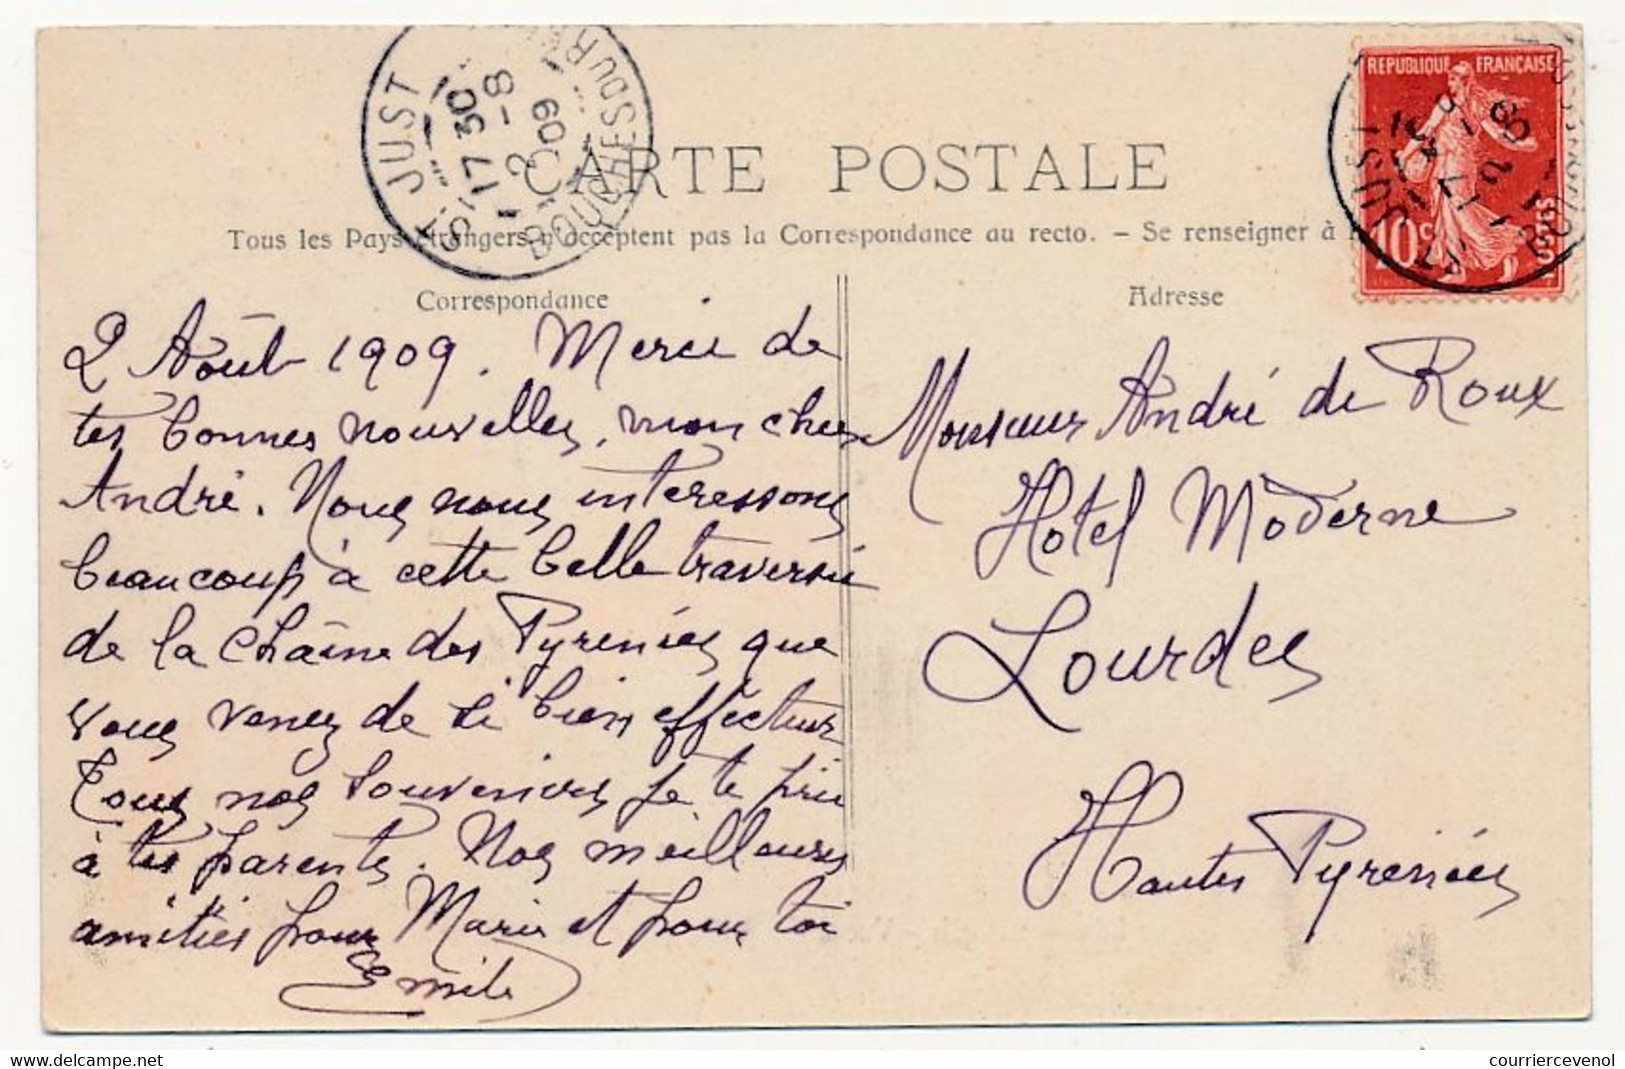 CARTE POSTALE
Tous les Pays étrangers n'acceptent pas la Correspondance au recto. - Se renseigner à
Correspondance
2 Août 1909. Merci de
tes bonnes nouvelles, mon cher
André. Nous nous intéressons
beaucoup à cette belle traversée
de la chaîne des Pyrénées que
vous venez de si bien effectuer
Tous nos souvenirs je te prie
à tes parents. Nos meilleures
amitiés pour Marie et pour toi
Emile
Adresse
Monsieur André de Roux
Hotel Moderne
Lourdes
Hautes Pyrénées
ST JUST
17 30
2 - 8
09
BOUCHES DU R
REPUBLIQUE FRANÇAISE
10 c
POSTES
courriercevenol
https://www.delcampe.net/fr/collections/store/courriercevenol